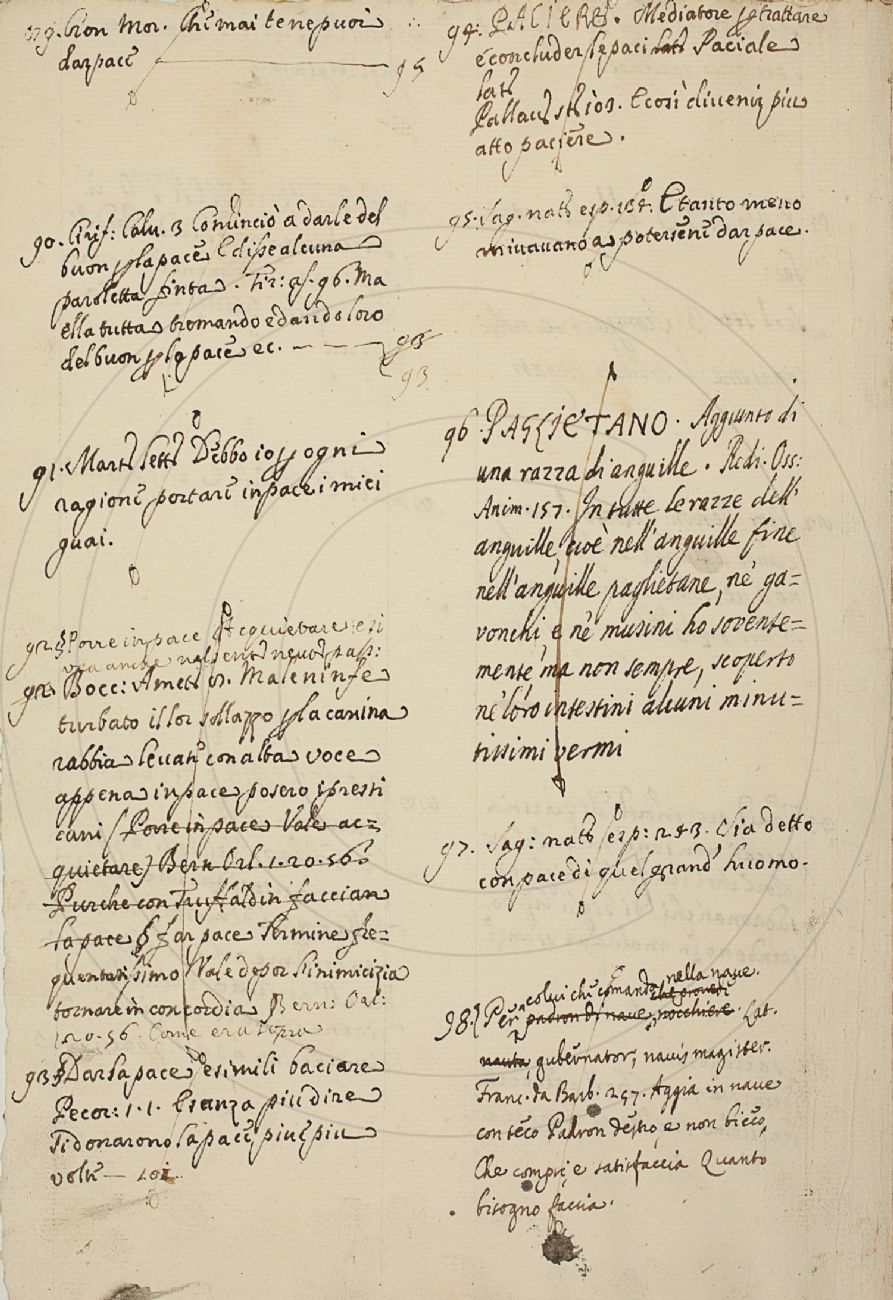 89. Cron Mor. Chi mai te ne puoi
dar pace 95
90. Cirif: Calv. 3 Cominciò a darle del
buon p la pace E disse alcuna
paroletta finta. Fir: as. 96. Ma
ella tutta tremando e dando loro
del buon p la pace ec. 93
93
91. Mart. Lett. Debbo io p ogni
ragione portare in pace i miei
guai.
92. § Porre in pace p acquietare e si
usa anche nel sent. neut. pass:
92 Bocc: Amet. Male ninfe
turbato il lor sollazzo p la canina
rabbia levate con alta voce
appena in pace posero i presti
cani (Porre in pace Vale ac=
quietare) Bern Orl. 1. 20. 56.
Purche con Truffaldin facciam
la pace § Far pace Termine fre=
quentatissimo Vale depor l'inimicizia
tornare in concordia Bern: Orl:
1. 20. 56. Come era sopra
93 § Dar la pace e simili baciare
Pecor: 1. 1. E sanza piu dire
Si donarono la pace piu e piu
volte — 101
94: PACIERE. Mediatore p trattare
e concluder le paci lat. Paciale
lat.
Pallav. st. 103. E così divenir piu
atto paciere.
95. Sag. nat. esp. 134. E tanto meno
miravano a potersene dar pace.
96. PAGLIETANO. Aggiunto di
una razza di anguille. Redi. Oss:
Anim. 157. In tutte le razze dell'
anguille, cioè nell'anguille fine
nell'anguille paglietane, nè ga=
vonchi, e nè musini ho sovente=
mente, ma non sempre, scoperto
nè loro intestini alcuni minu=
tissimi vermi
97. Sag: nat. esp: 243. Sia detto
con pace di quel grand' huomo.
colui chi comanda nella nave.
98. § Per padron di nave, nocchiere. Lat.
nauta, gubernator, navis magister.
Franc. da Barb. 257. Aggia in nave
con teco Padron destro, e non bieco,
Che compri, e satisfaccia Quanto
bisogno faccia.